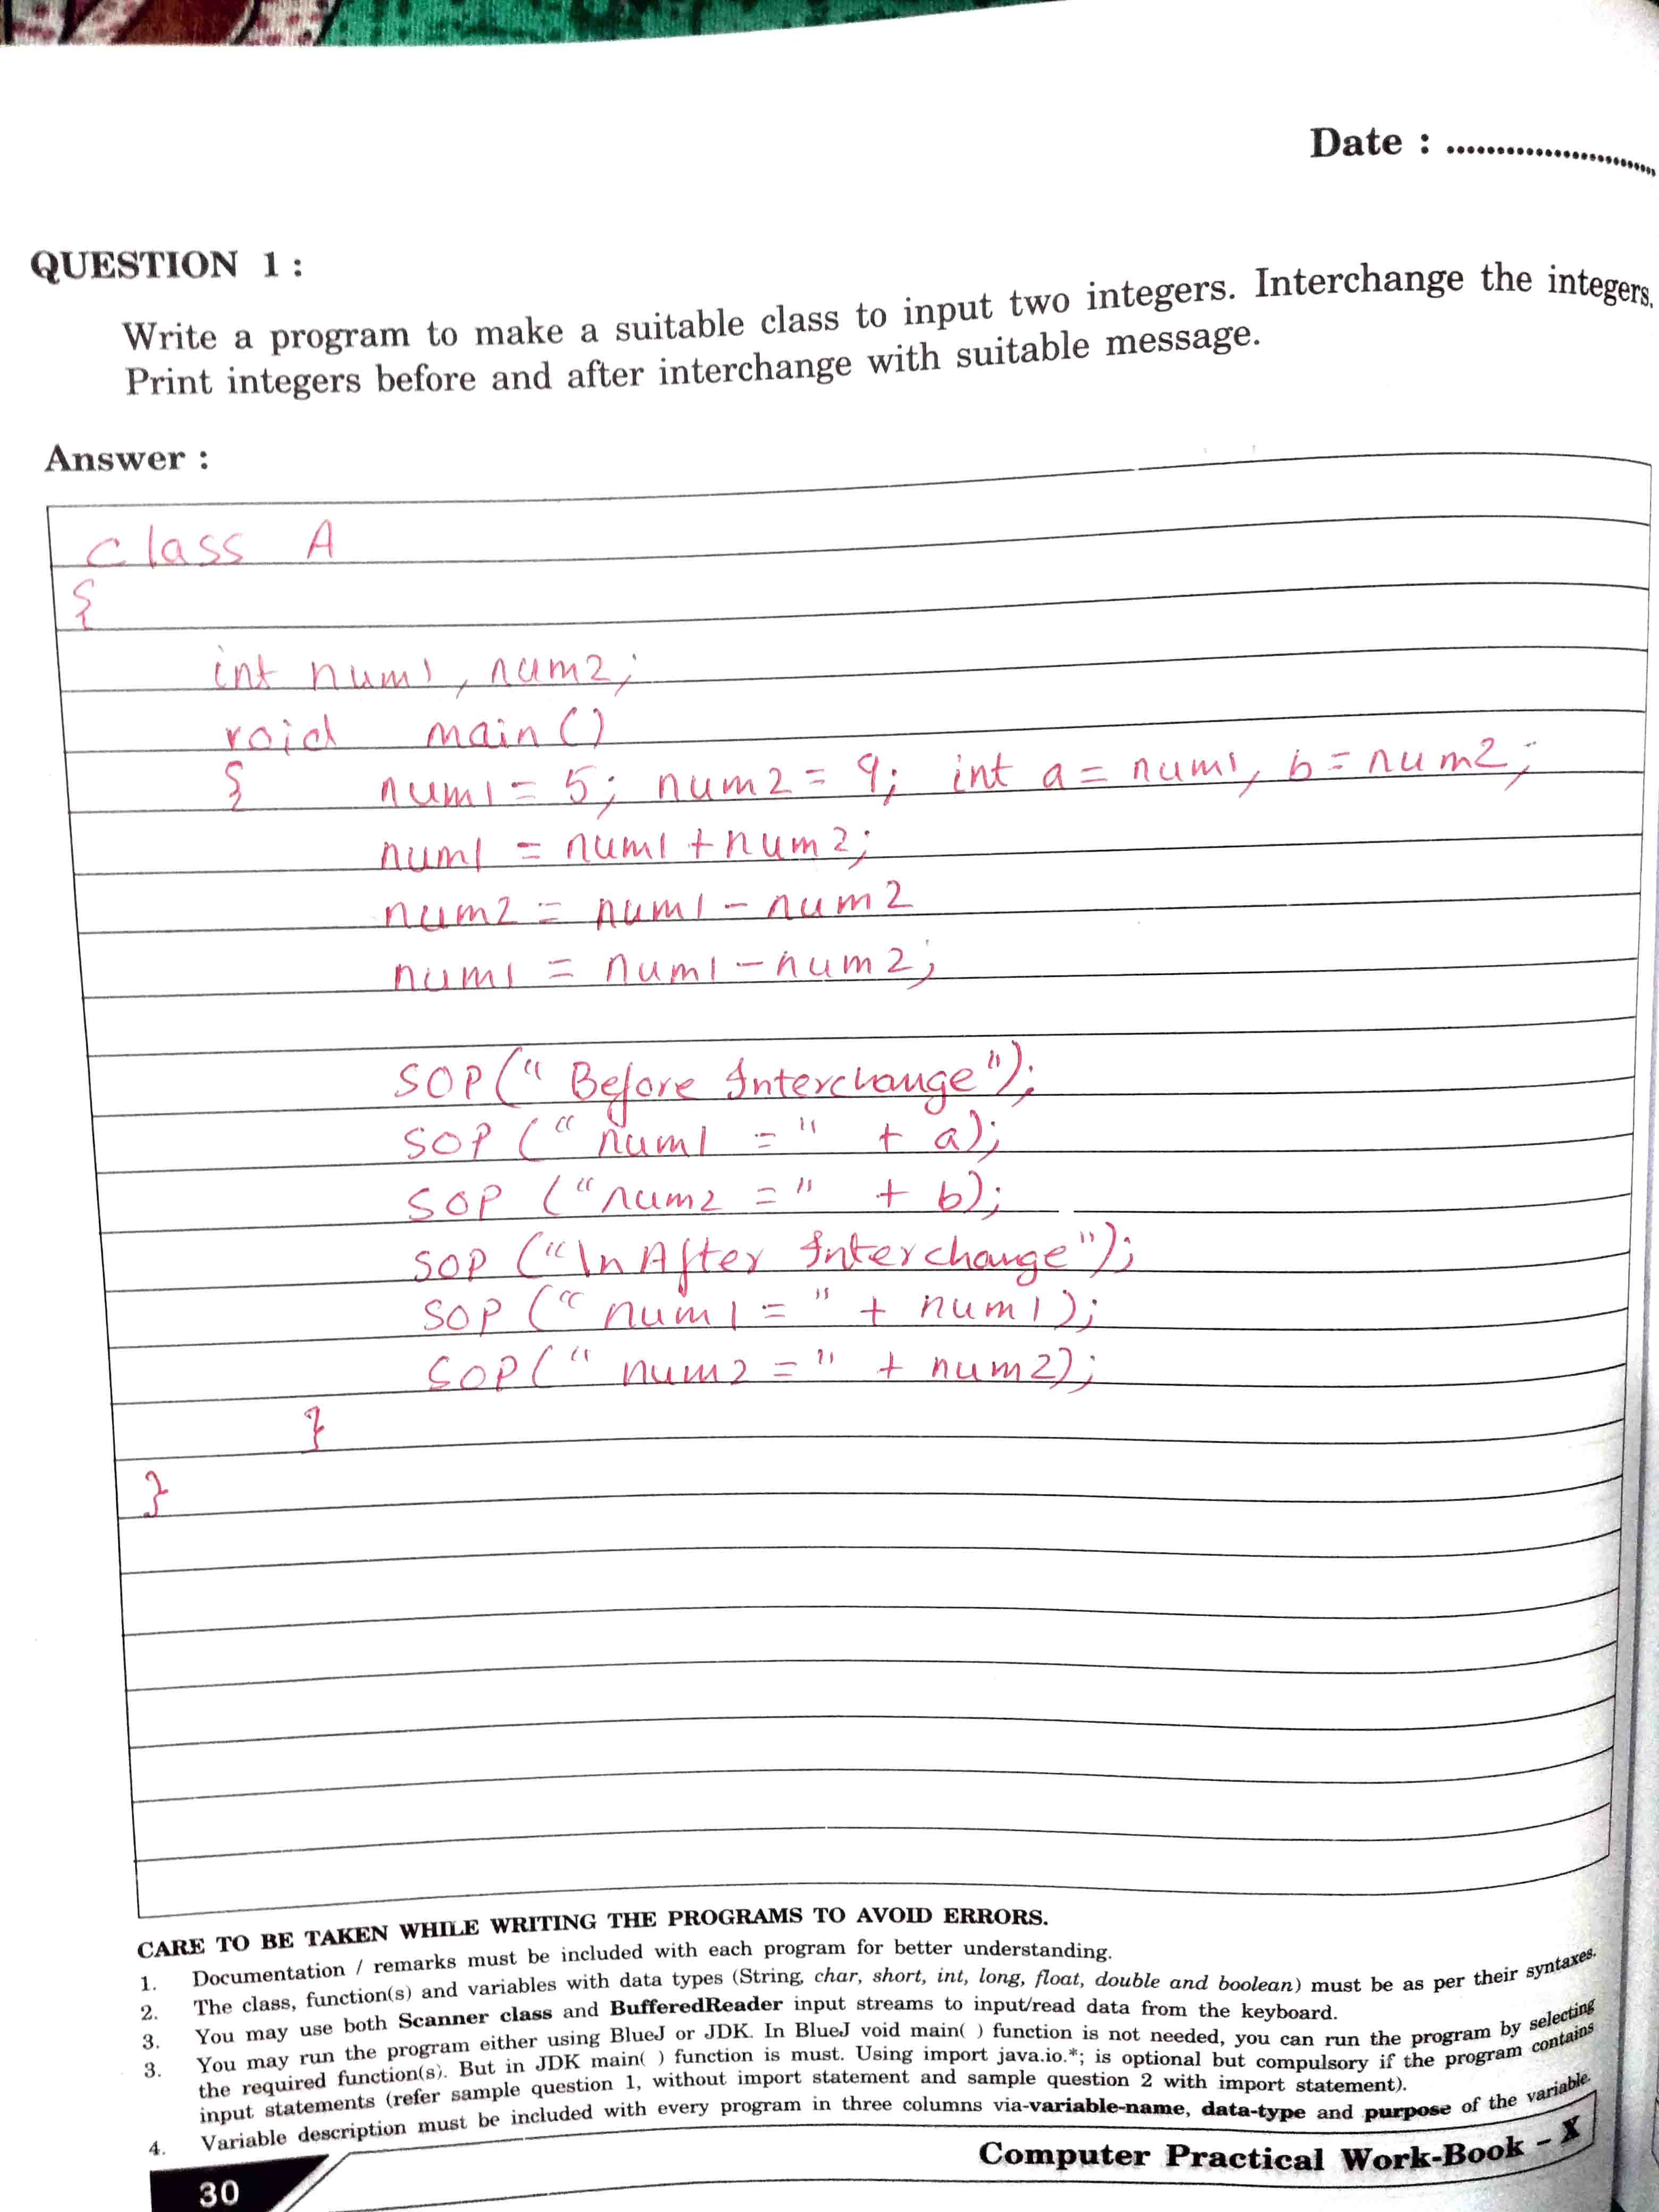 Date : ..........................
QUESTION 1 :
Write a program to make a suitable class to input two integers. Interchange the integers.
Print integers before and after interchange with suitable message.
Answer :
class A
{
int num1, num2;
void main()
{ num1 = 5; num2 = 9; int a = num1, b = num2;
num1 = num1 + num2;
num2 = num1 - num2
num1 = num1 - num2;
SOP(" Before Interchange");
SOP (" num1 = " + a);
SOP ("num2 = " + b);
SOP ("\nAfter Interchange");
SOP (" num1 = " + num1);
SOP(" num2 = " + num2);
}
}
CARE TO BE TAKEN WHILE WRITING THE PROGRAMS TO AVOID ERRORS.
1. Documentation / remarks must be included with each program for better understanding.
2. The class, function(s) and variables with data types (String, char, short, int, long, float, double and boolean) must be as per their syntaxes.
3. You may use both Scanner class and BufferedReader input streams to input/read data from the keyboard.
3. You may run the program either using BlueJ or JDK. In BlueJ void main( ) function is not needed, you can run the program by selecting
the required function(s). But in JDK main( ) function is must. Using import java.io.*; is optional but compulsory if the program contains
input statements (refer sample question 1, without import statement and sample question 2 with import statement).
4. Variable description must be included with every program in three columns via-variable-name, data-type and purpose of the variable.
Computer Practical Work-Book - X
30